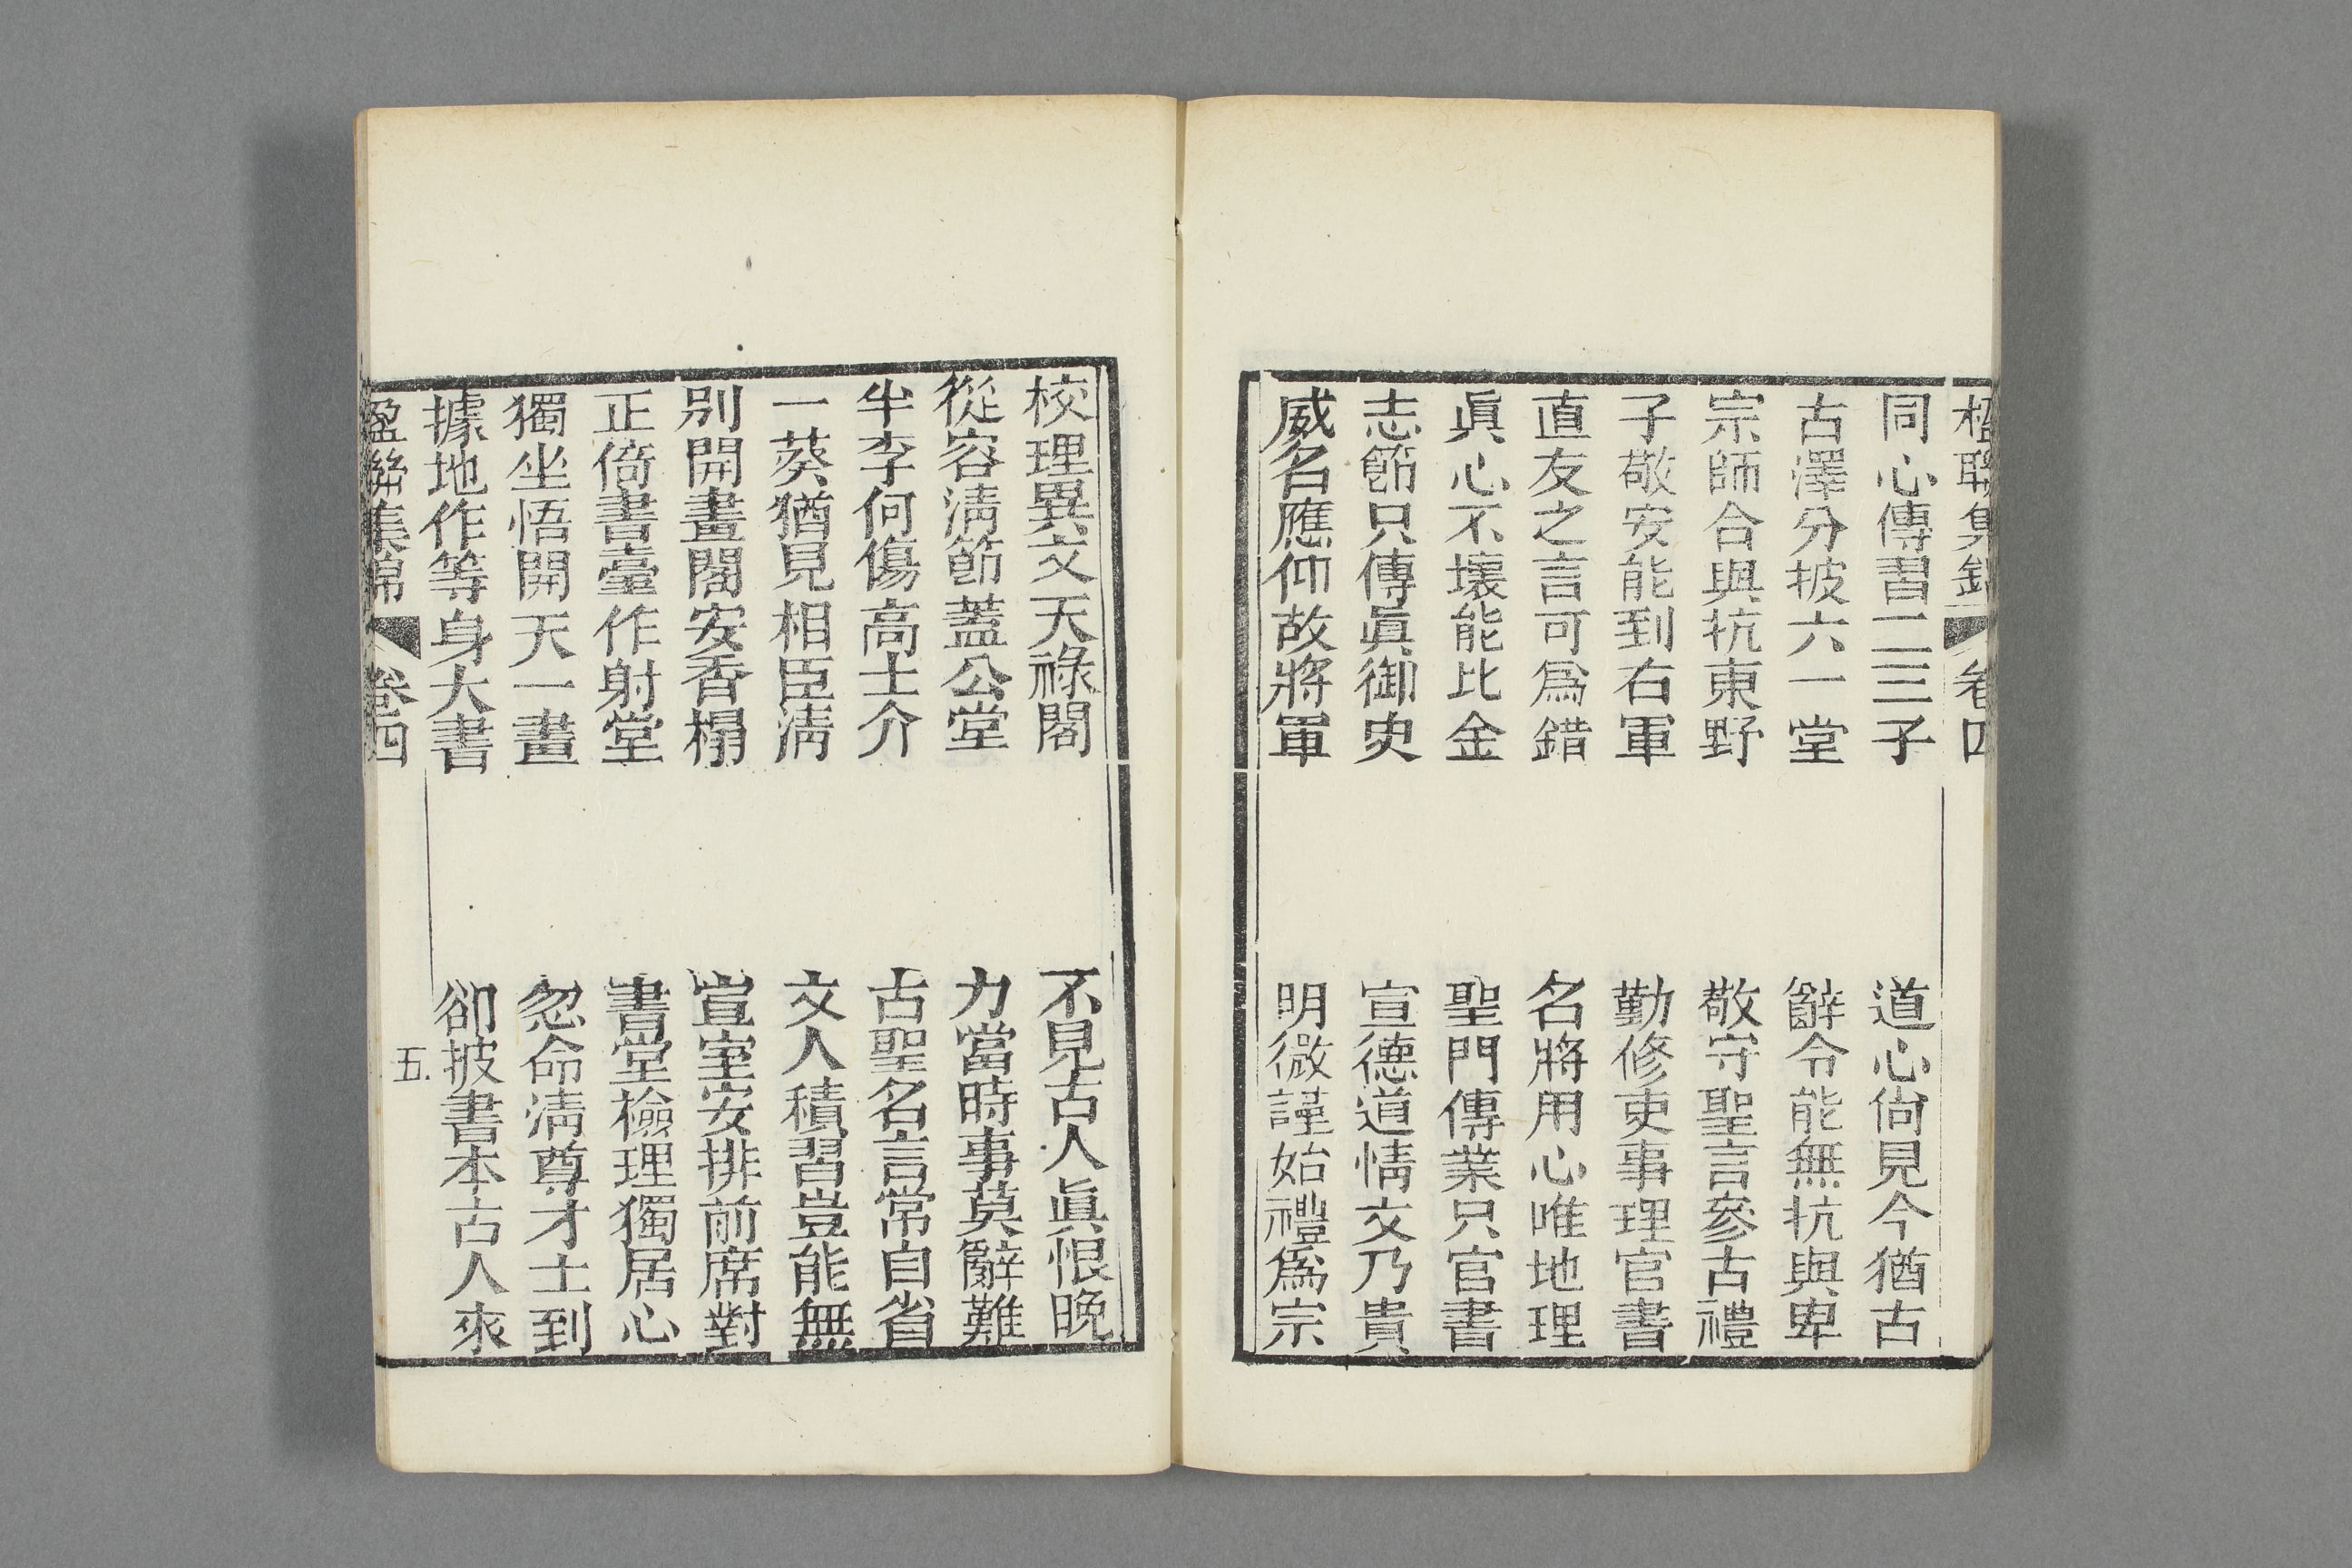 楹聯集錦 卷四
同心傳書二三子 道心尙見今猶古
古澤分披六一堂 辭令能無抗與卑
宗師合與抗東野 敬守聖言參古禮
子敬安能到右軍 勤修吏事理官書
直友之言可爲錯 名將用心唯地理
眞心不壞能比金 聖門傳業只官書
志節只傳眞御史 宣德道情文乃貴
威名應仰故將軍 明微謹始禮爲宗
校理異文天祿閣 不見古人眞恨晚
從容淸節蓋公堂 力當時事莫辭難
半李何傷高士介 古聖名言常自省
一葵猶見相臣淸 文人積習豈能無
別開畫閣安香榻 宣室安排前席對
正倚書臺作射堂 書堂檢理獨居心
獨坐悟開天一畫 忽命淸尊才士到
據地作等身大書 卻披書本古人來
楹聯集錦 卷四 五